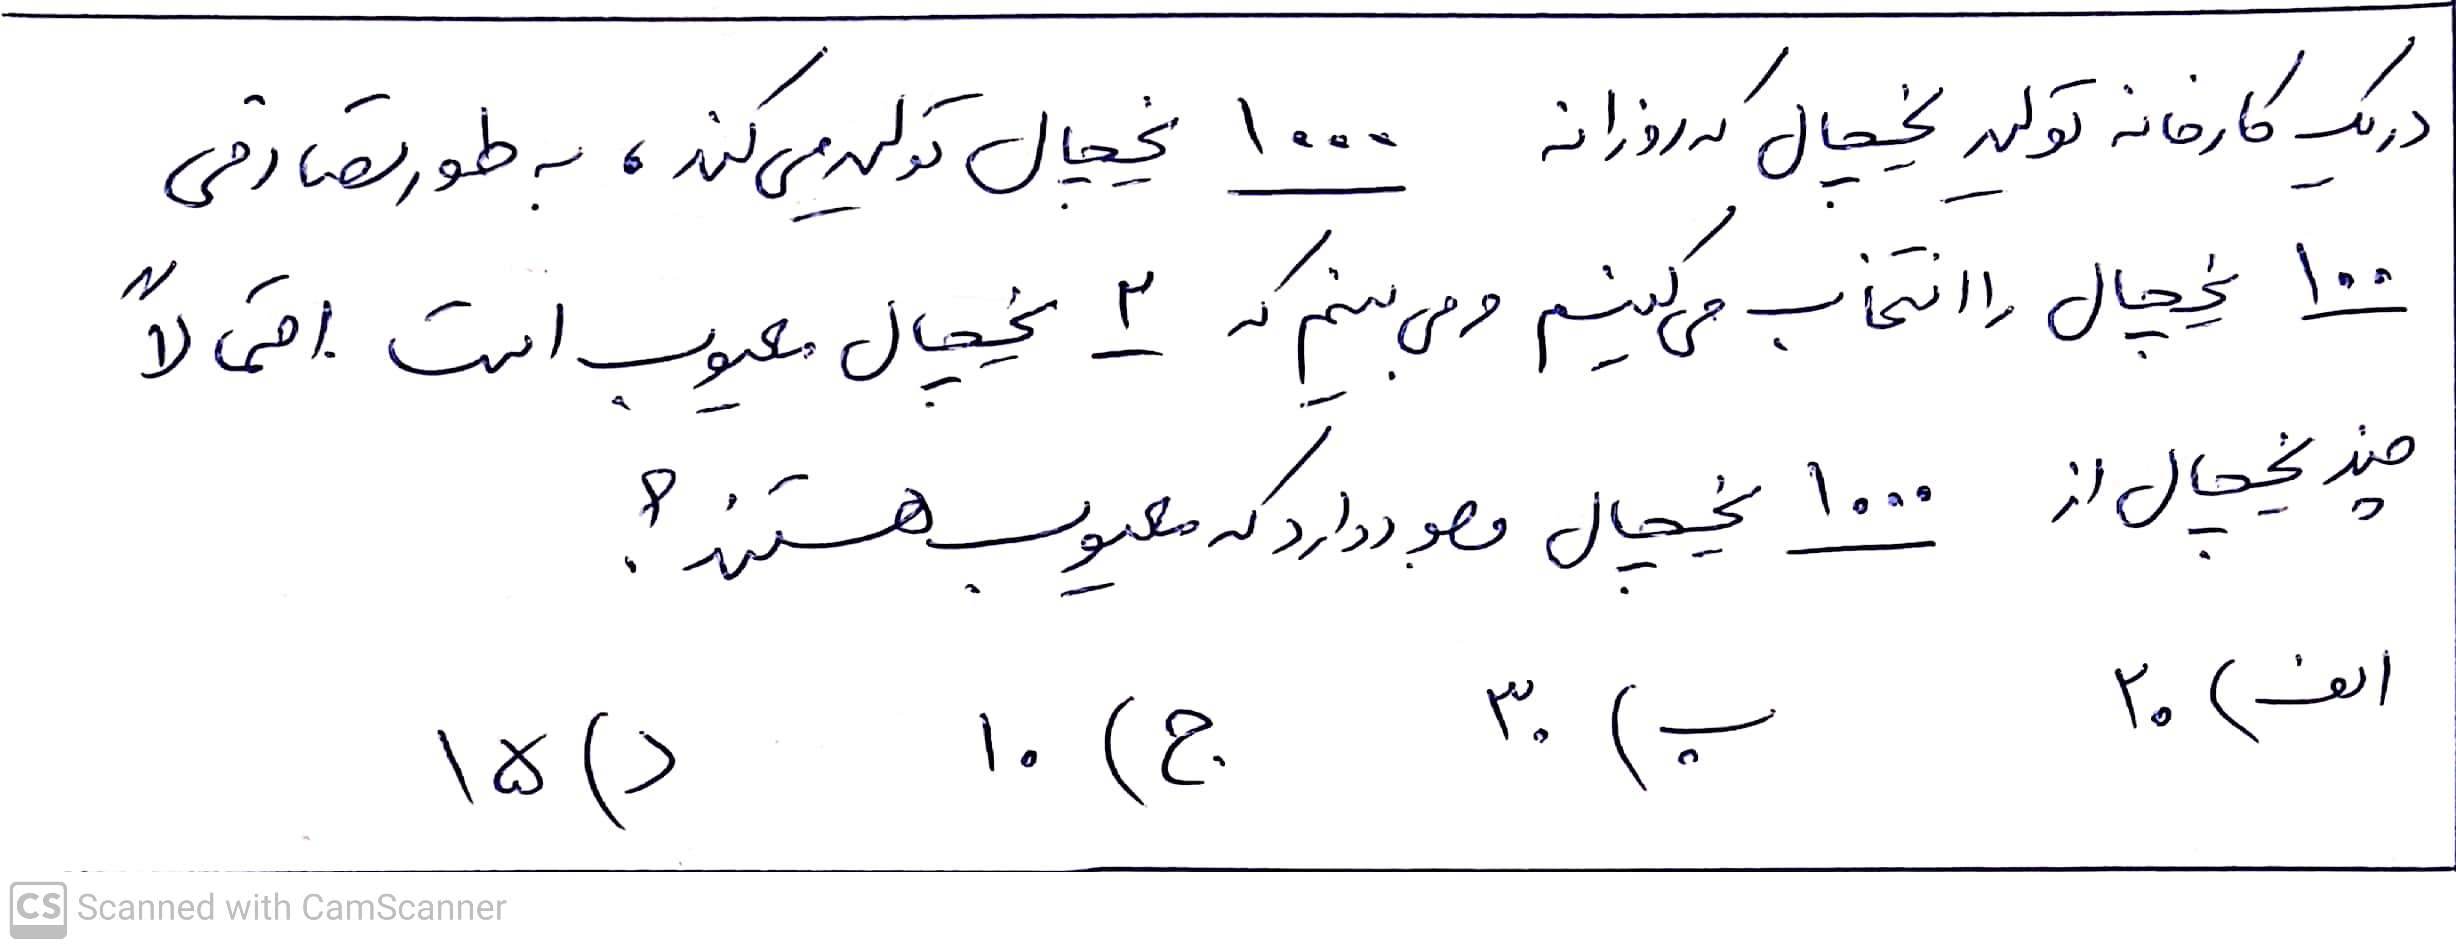 در یک کارخانه تولید یخچال که روزانه ۱۰۰۰ یخچال تولید می‌کند، به طور تصادفی
۱۰۰ یخچال را انتخاب می‌کنیم و می‌بینیم که ۲ یخچال معیوب است. احتمالاً
چند یخچال از ۱۰۰۰ یخچال وجود دارد که معیوب هستند؟
الف) ۲۰ ب) ۳۰ ج) ۱۰ د) ۱۵
CS Scanned with CamScanner